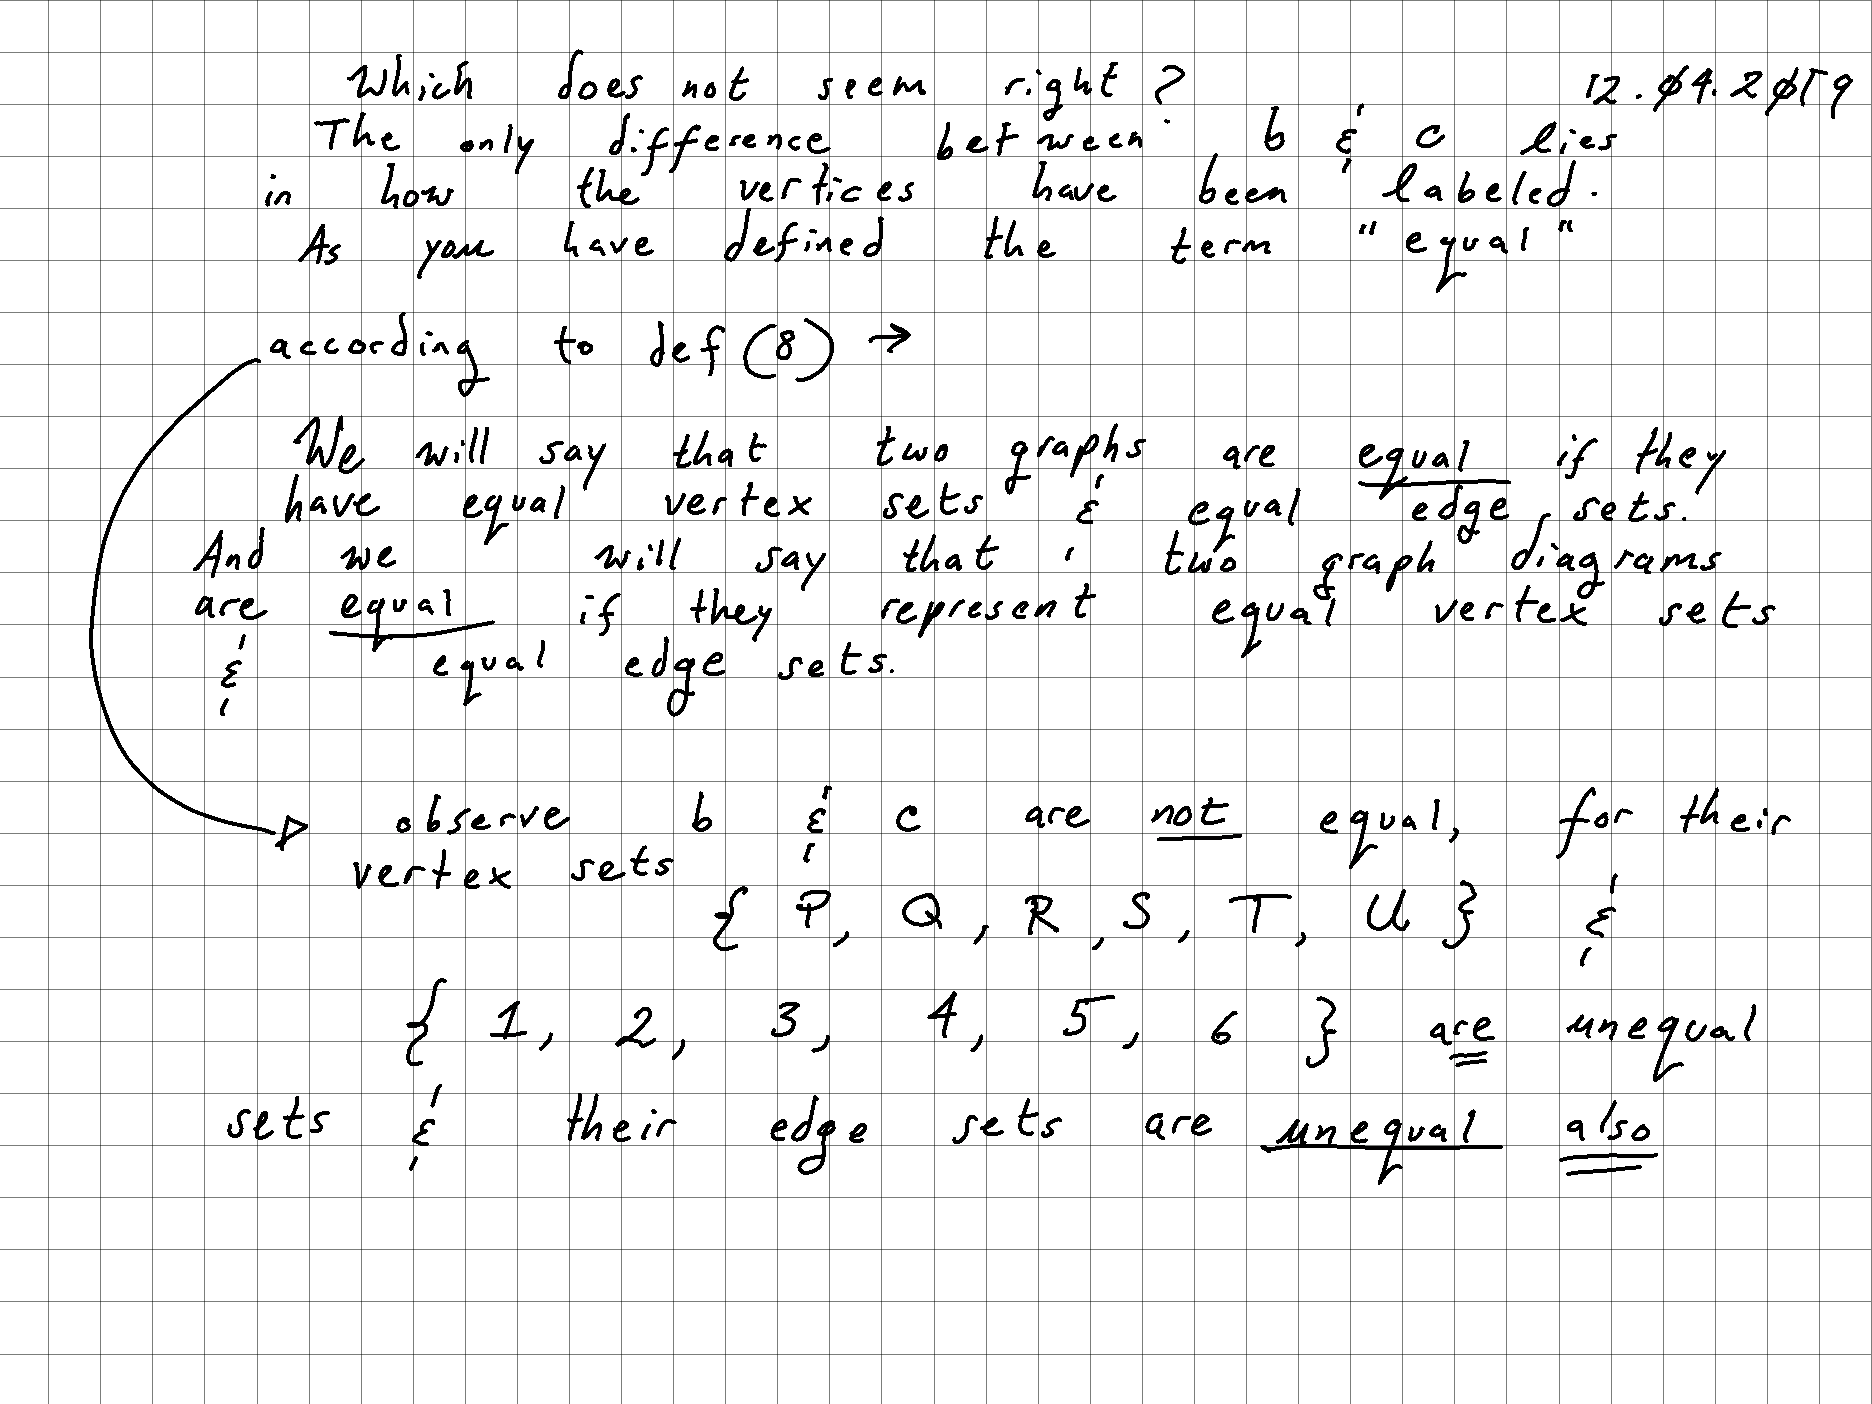 Which does not seem right? 12.04.2019
The only difference between b & c lies
in how the vertices have been labeled.
As you have defined the term "equal"
according to def (8) →
We will say that two graphs are equal if they
have equal vertex sets & equal edge sets.
And we will say that two graph diagrams
are equal if they represent equal vertex sets
& equal edge sets.
observe b & c are not equal, for their
vertex sets
{ P, Q, R, S, T, U } &
{ 1, 2, 3, 4, 5, 6 } are unequal
sets & their edge sets are unequal also